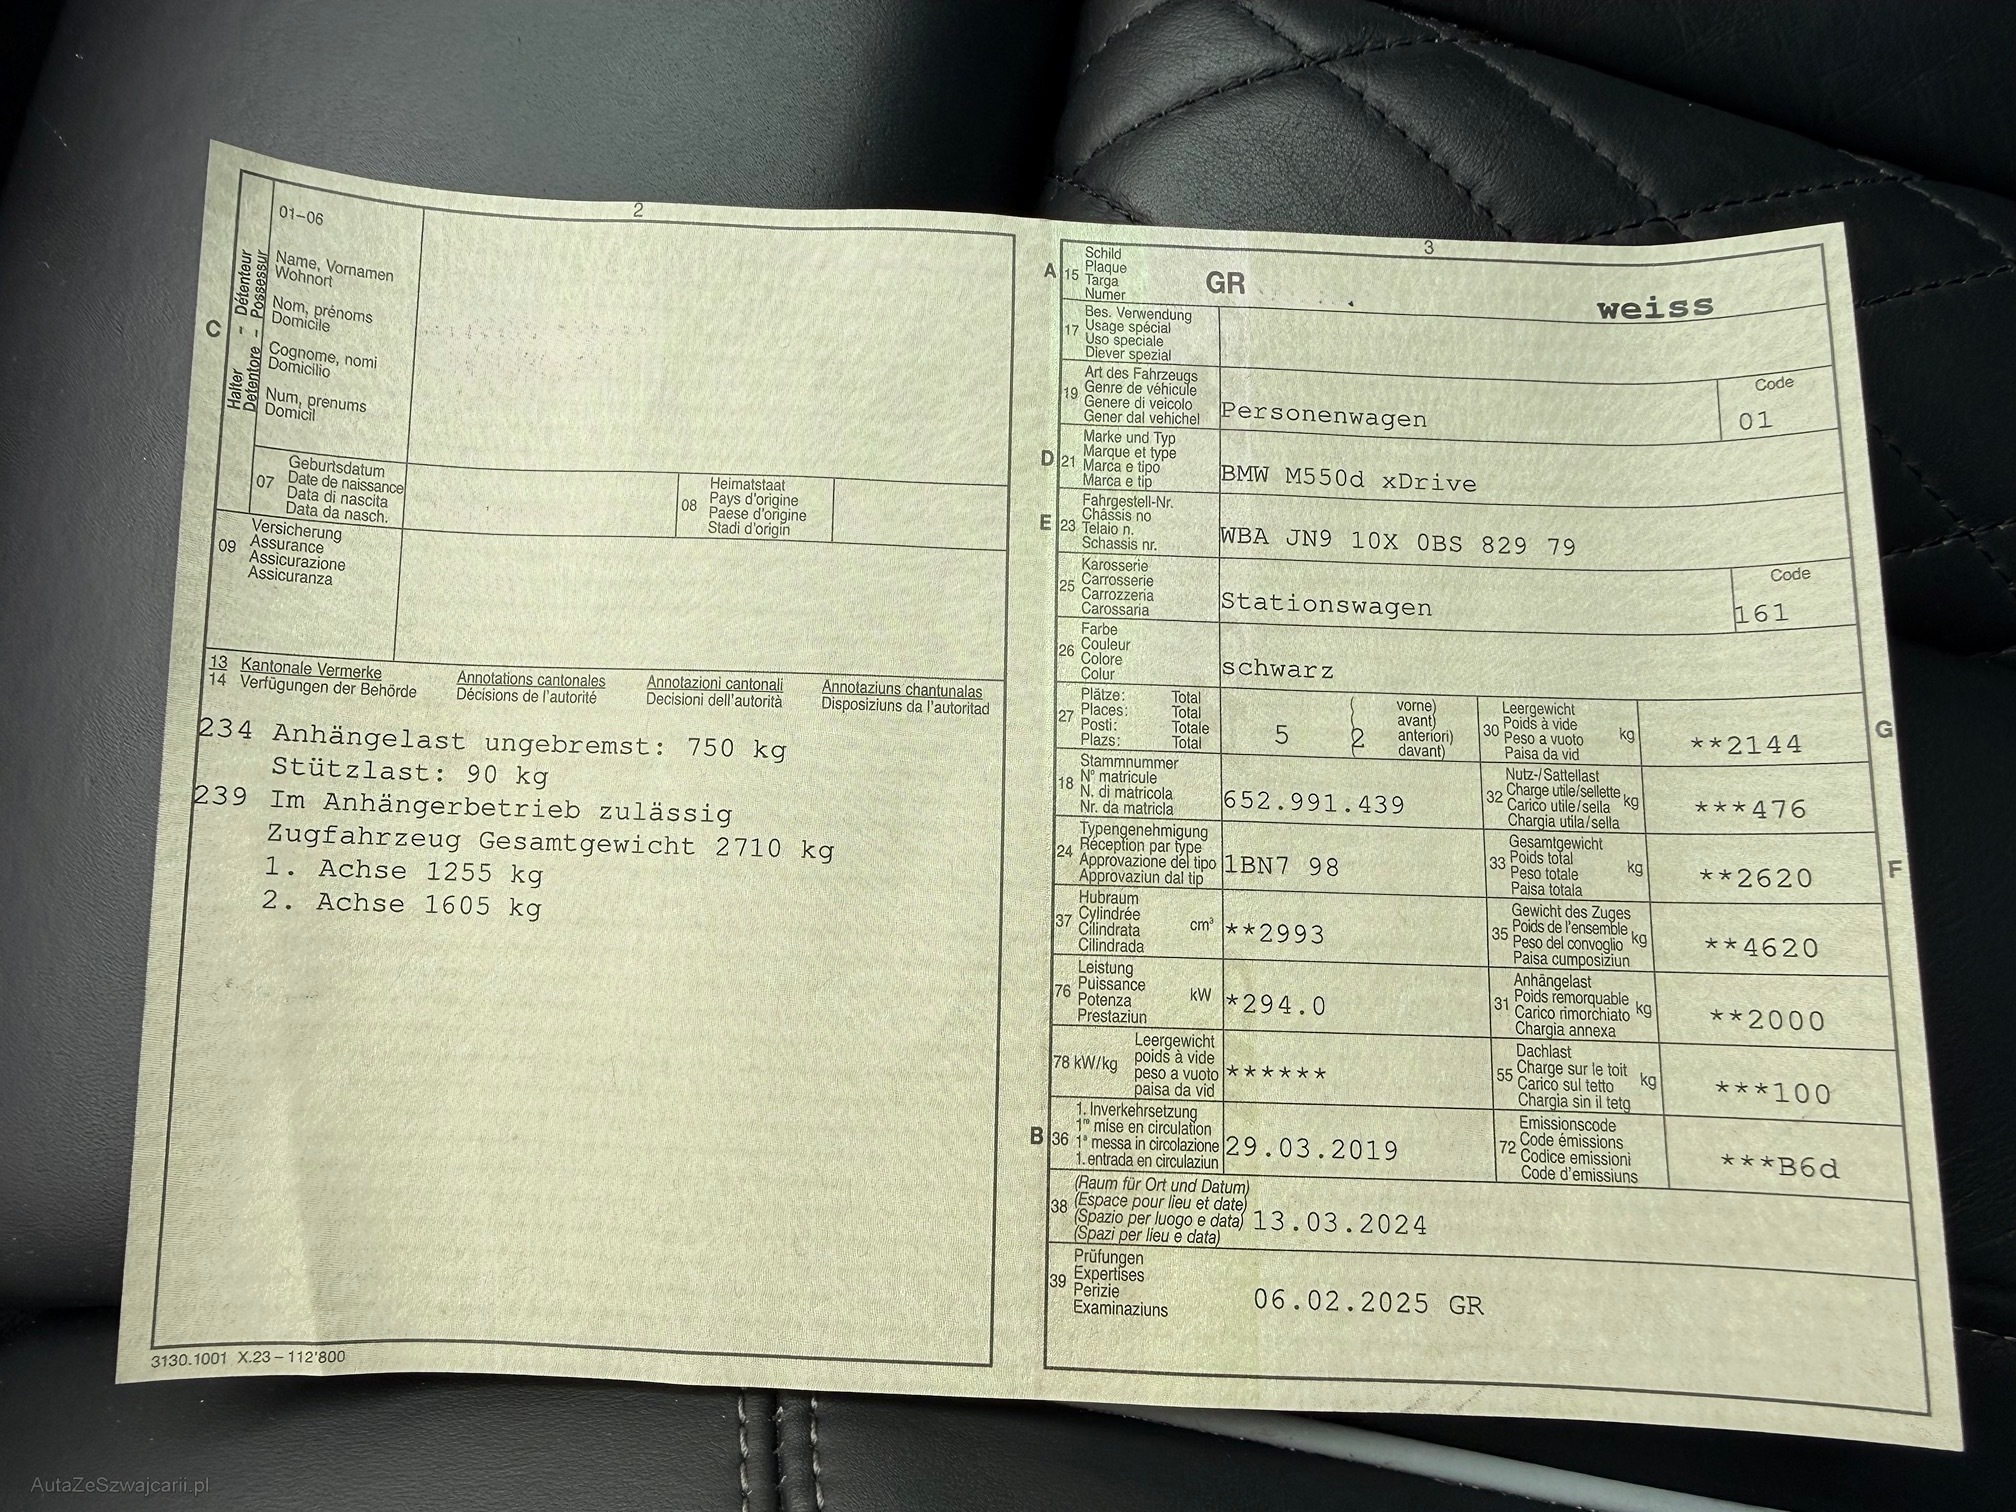 2
01–06
Name, Vornamen
Wohnort
Nom, prénoms
Domicile
Cognome, nomi
Domicilio
Num, prenums
Domicil
C
Halter - Détenteur
Detentore - Possessur
07
Geburtsdatum
Date de naissance
Data di nascita
Data da nasch.
08
Heimatstaat
Pays d'origine
Paese d'origine
Stadi d'origin
09
Versicherung
Assurance
Assicurazione
Assicuranza
13 Kantonale Vermerke Annotations cantonales Annotazioni cantonali Annotaziuns chantunalas
14 Verfügungen der Behörde Décisions de l'autorité Decisioni dell'autorità Disposiziuns da l'autoritad
234 Anhängelast ungebremst: 750 kg
Stützlast: 90 kg
239 Im Anhängerbetrieb zulässig
Zugfahrzeug Gesamtgewicht 2710 kg
1. Achse 1255 kg
2. Achse 1605 kg
3130.1001 X.23 – 112'800
3
A 15
Schild
Plaque
Targa
Numer
GR
weiss
17
Bes. Verwendung
Usage spécial
Uso speciale
Diever spezial
19
Art des Fahrzeugs
Genre de véhicule
Genere di veicolo
Gener dal vehichel
Personenwagen
Code
01
D 21
Marke und Typ
Marque et type
Marca e tipo
Marca e tip
BMW M550d xDrive
E 23
Fahrgestell-Nr.
Châssis no
Telaio n.
Schassis nr.
WBA JN9 10X 0BS 829 79
25
Karosserie
Carrosserie
Carrozzeria
Carossaria
Stationswagen
Code
161
26
Farbe
Couleur
Colore
Colur
schwarz
27
Plätze: Total
Places: Total
Posti: Totale
Plazs: Total
5
2
vorne)
avant)
anteriori)
davant)
30
Leergewicht
Poids à vide
Peso a vuoto
Paisa da vid
kg
**2144
G
18
Stammnummer
N° matricule
N. di matricola
Nr. da matricla
652.991.439
32
Nutz-/Sattellast
Charge utile/sellette
Carico utile/sella
Chargia utila/sella
kg
***476
24
Typengenehmigung
Réception par type
Approvazione del tipo
Approvaziun dal tip
1BN7 98
33
Gesamtgewicht
Poids total
Peso totale
Paisa totala
kg
**2620
F
37
Hubraum
Cylindrée
Cilindrata
Cilindrada
cm³
**2993
35
Gewicht des Zuges
Poids de l'ensemble
Peso del convoglio
Paisa cumposiziun
kg
**4620
76
Leistung
Puissance
Potenza
Prestaziun
kW
*294.0
31
Anhängelast
Poids remorquable
Carico rimorchiato
Chargia annexa
kg
**2000
78 kW/kg
Leergewicht
poids à vide
peso a vuoto
paisa da vid
******
55
Dachlast
Charge sur le toit
Carico sul tetto
Chargia sin il tetg
kg
***100
B 36
1. Inverkehrsetzung
1re mise en circulation
1a messa in circolazione
1. entrada en circulaziun
29.03.2019
72
Emissionscode
Code émissions
Codice emissioni
Code d'emissiuns
***B6d
38
(Raum für Ort und Datum)
(Espace pour lieu et date)
(Spazio per luogo e data)
(Spazi per lieu e data)
13.03.2024
39
Prüfungen
Expertises
Perizie
Examinaziuns
06.02.2025 GR
AutaZeSzwajcarii.pl